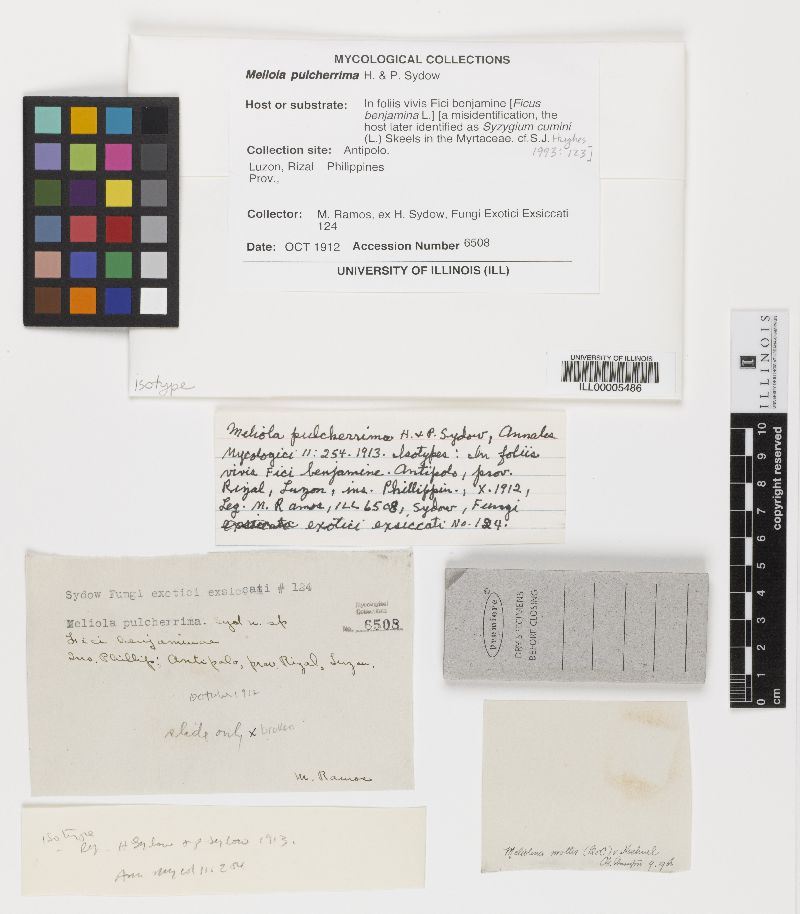 MYCOLOGICAL COLLECTIONS
Meliola pulcherrima H. & P. Sydow
Host or substrate: In foliis vivis Fici benjamine [Ficus
benjamina L.] [a misidentification, the
host later identified as Syzygium cumini
(L.) Skeels in the Myrtaceae. cf.S.J. Hughes
1993: 123]
Collection site: Antipolo.
Luzon, Rizal Philippines
Prov.,
Collector: M. Ramos, ex H. Sydow, Fungi Exotici Exsiccati
124
Date: OCT 1912 Accession Number 6508
UNIVERSITY OF ILLINOIS (ILL)
isotype
UNIVERSITY OF ILLINOIS
ILL00005486
ILLINOIS
Meliola pulcherrima H. & P. Sydow, Annales
Mycologici 11: 254. 1913. Isotypes: In foliis
vivis Fici benjamine. Antipolo, prov.
Rizal, Luzon, ins. Phillippin., X.1912,
Leg. M. Ramos, ILL 6508, Sydow, Fungi
exotici exsiccati No. 124.
Sydow Fungi exotici exsiccati # 124
Meliola pulcherrima. Syd n. sp
Mycological
Collections
No. 6508
Fici benjaminae
Ins. Phillip: Antipolo, prov Rizal, Luzon.
October 1912
slide only x broken
M. Ramos
Premiere
DRY SPECIMENS
BEFORE CLOSING
isotype
H Sydow & P Sydow 1913.
Ann Mycol 11: 254
0 1 2 3 4 5 6 7 8 9 10
cm
copyright reserved